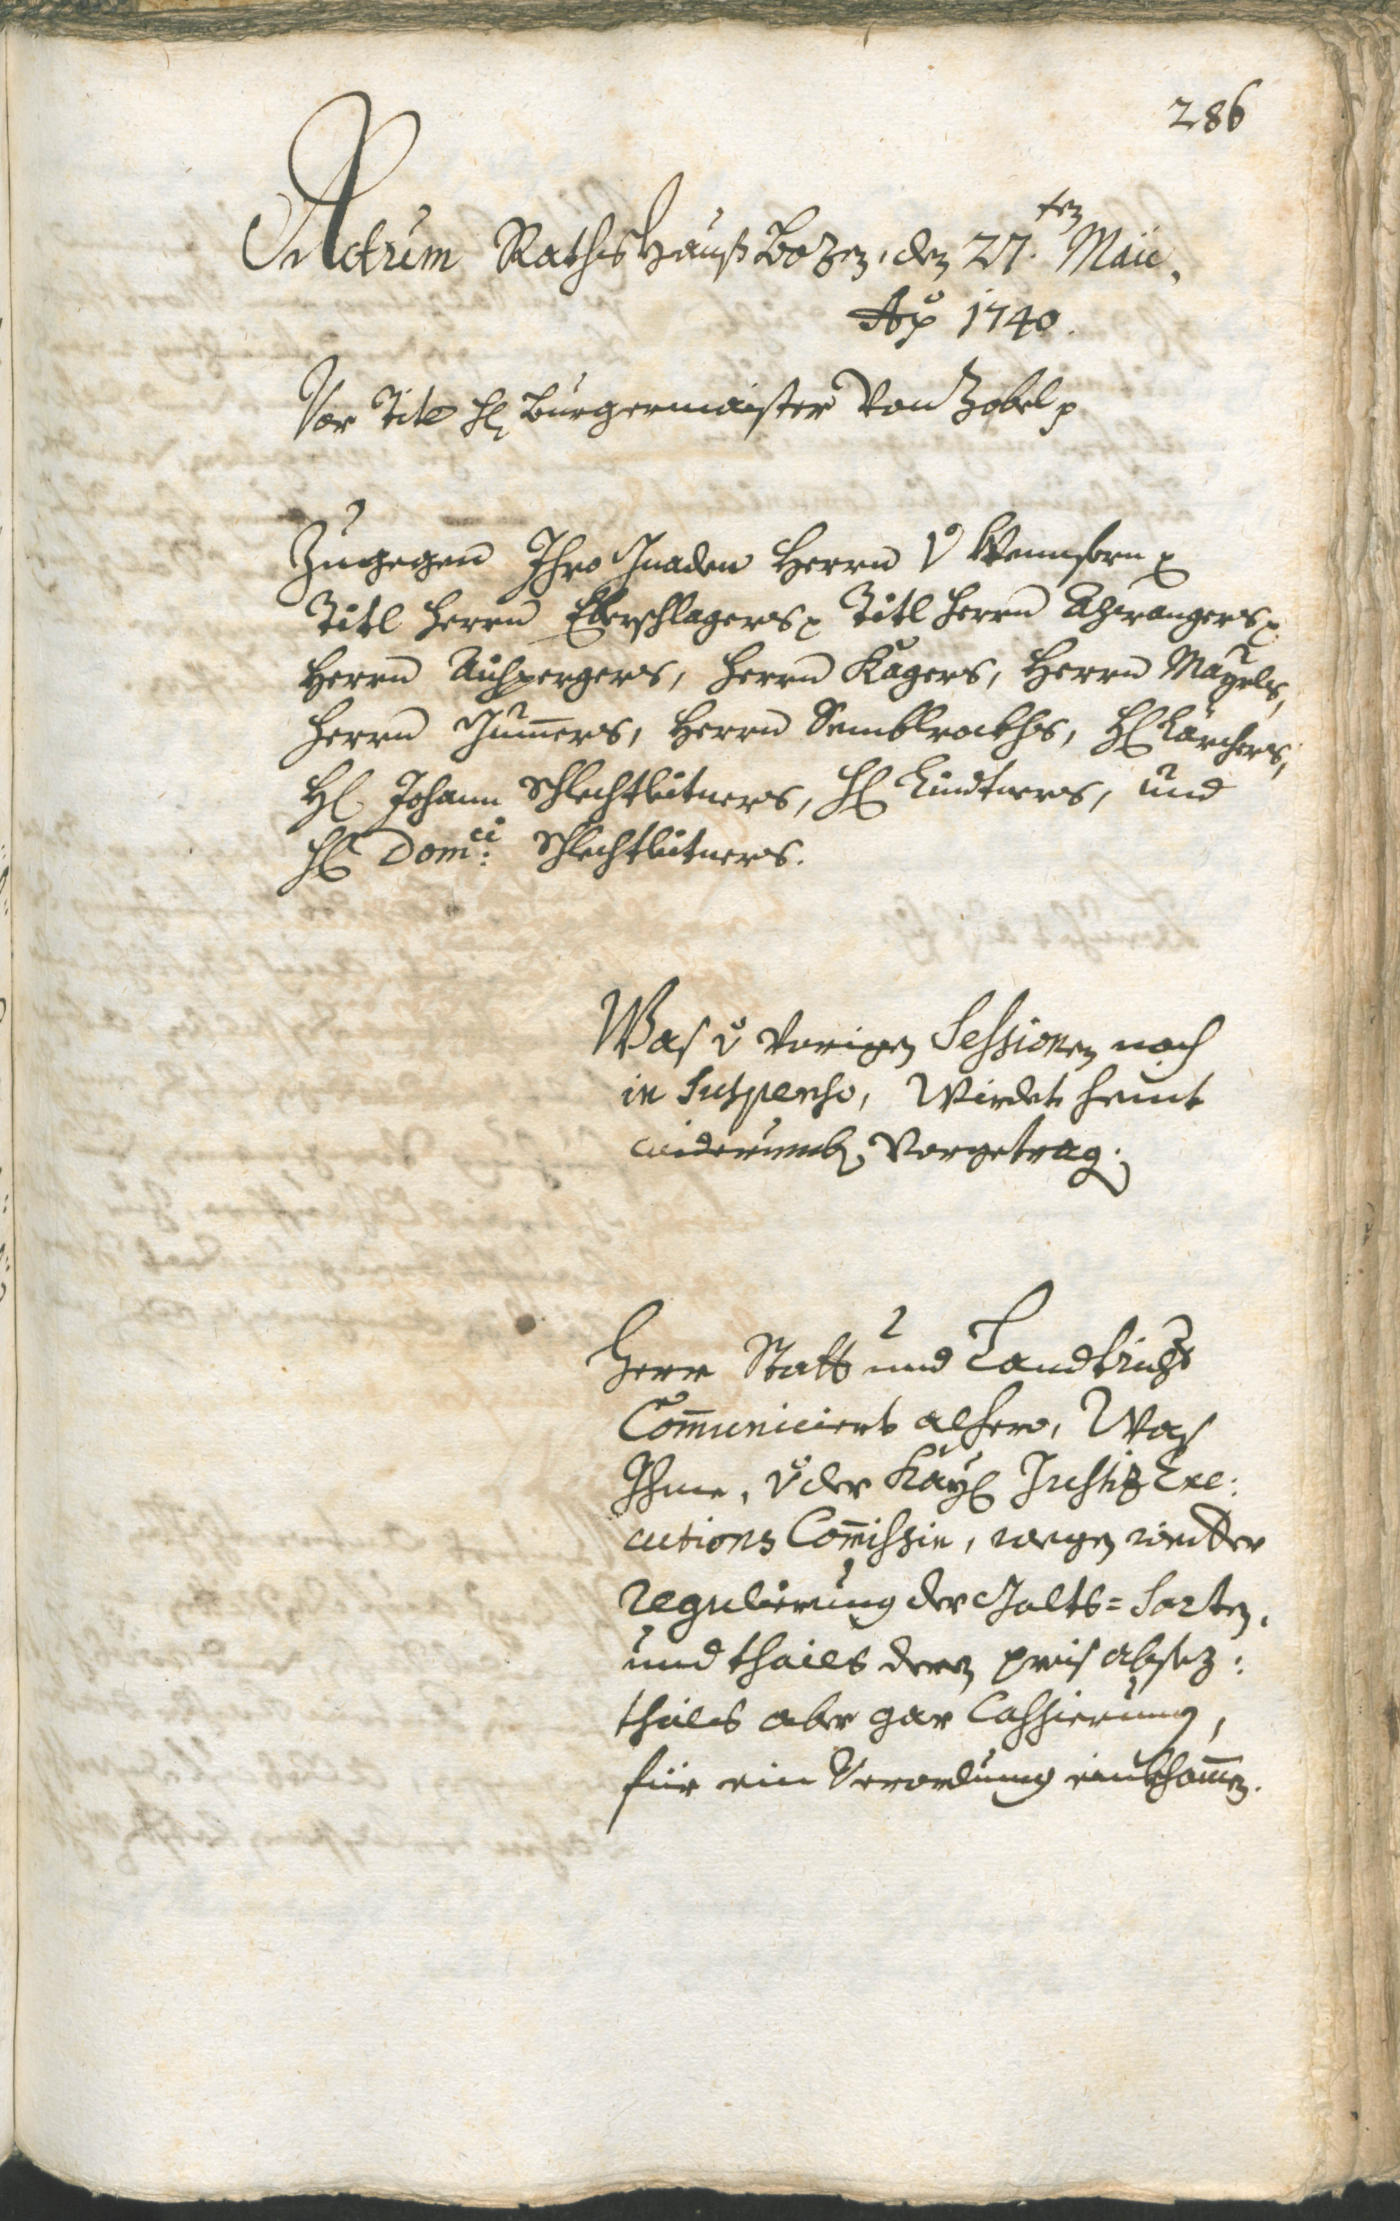 286
Actum Rathshauß Bozen, den 27.ten Maii,
Ao 1740.
Vor Titl H. Burgermaister Von Zobel p
Zugegen Ihro Gnaden Herrn v Wennsern p
Titl Herrn Eberschlagers p Titl Herrn Azwangers p
Herrn Aichpergers, Herrn Kagers, Herrn Mayrls,
Herrn Gum̄ers, Herrn Semblrockhs, H. Lärchers,
H. Johann Schlechtleitners, H. Lindtners, und
H. Dom:ci Schlechtleitners.
Was v Vorigen Sessionen noch
in Suspenso, Wirdet heunt
widerumb Vorgetrag.
Herr Statt und Landtrichter
Com̄uniciert alhero, Was
Ihme, v der Kay: Justiz Exe:
cutions Com̄ission, wegen
regulierung der Golts= Sorten,
und thails deren preis absez:
thails aber gar Cassierung,
für ein Verordnung einkhom̄en.